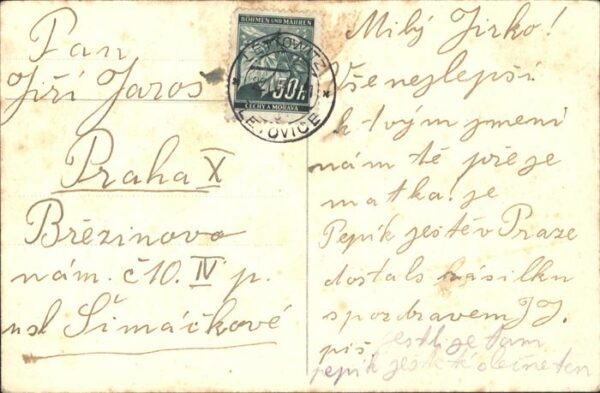 Pan
Jiří Jaros
Praha X
Březinovo
nám. č 10. IV p.
u sl Šimáčkové
BÖHMEN UND MÄHREN
50 h
ČECHY A MORAVA
LETTOWITZ
LETOVICE
Milý Jirko!
Vše nejlepší
k tvým zmeni
nám tě přeje
matka. je
Pepík ještě v Praze
dostals zásilku
s pozdravem J J.
piš jestli je tam
pepík ještě